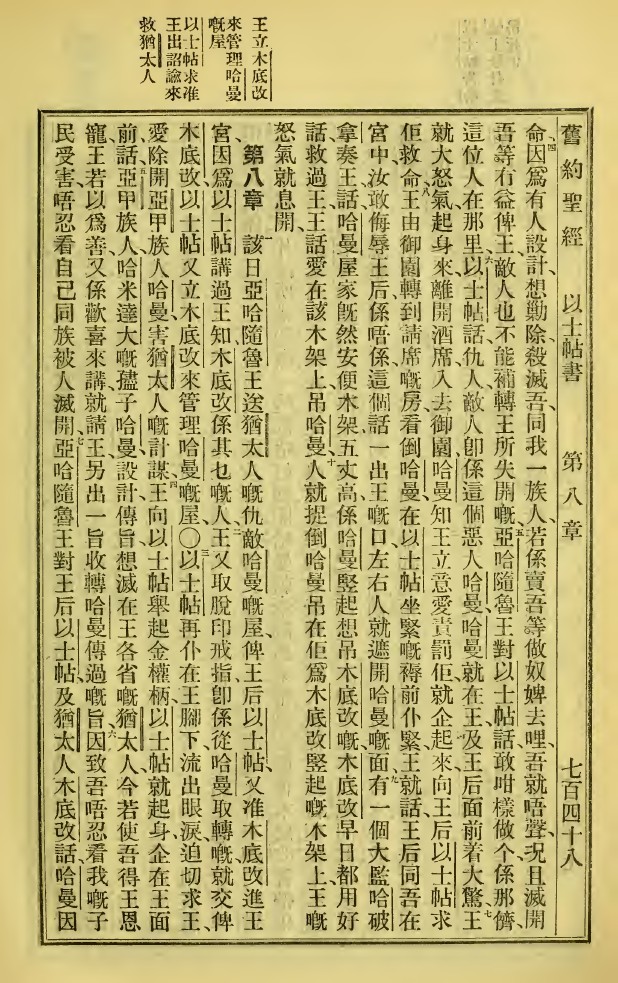 舊約聖經 以士帖書 第八章 七百四十八
王立木底改
來管理哈曼
嘅屋
以士帖求准
王出詔諭來
救猶太人
命、四因爲有人設計、想勦除殺滅吾同我一族人、若係賣吾等做奴婢去哩、吾就唔聲、况且滅開
吾等冇益俾王、敵人也不能補轉王所失開嘅、五亞哈隨魯王對以士帖話、敢咁樣做个係那儕、
這位人在那里、六以士帖話、仇人敵人卽係這個惡人哈曼、哈曼就在王及王后面前着大驚、七王
就大怒氣起身來離開酒席入去御園、哈曼知王立意愛責罰佢、就企起來向王后以士帖求
佢救命、八王由御園轉到請席嘅房、看倒哈曼在以士帖坐緊嘅褥前仆緊、王就話、王后同吾在
宮中、汝敢侮辱王后係唔係、這個話一出王嘅口、左右人就遮開哈曼嘅面、九有一個大監哈破
拿奏王話、哈曼屋家旣然安便木架五丈高、係哈曼竪起想吊木底改嘅、木底改早日都用好
話救過王、王話、愛在該木架上吊哈曼、十人就捉倒哈曼吊在佢爲木底改竪起嘅木架上、王嘅
怒氣就息開、
第八章 一該日亞哈隨魯王送猶太人嘅仇敵哈曼嘅屋、俾王后以士帖、又准木底改進王
宮、因爲以士帖講過王知、木底改係其乜嘅人、二王又取脫印戒指、卽係從哈曼取轉嘅、就交俾
木底改、以士帖又立木底改來管理哈曼嘅屋、〇三以士帖再仆在王腳下、流出眼淚、迫切求王、
愛除開亞甲族人哈曼害猶太人嘅計謀、四王向以士帖舉起金權柄、以士帖就起身企在王面
前話、五亞甲族人哈米達大嘅孻子哈曼、設計傳旨想滅在王各省嘅猶太人、今若使吾得王恩
寵、王若以爲善、又係歡喜來講、就請王另出一旨收轉哈曼傳過嘅旨、六因致吾唔忍看我嘅子
民受害、唔忍看自己同族被人滅開、七亞哈隨魯王對王后以士帖、及猶太人木底改話、哈曼因